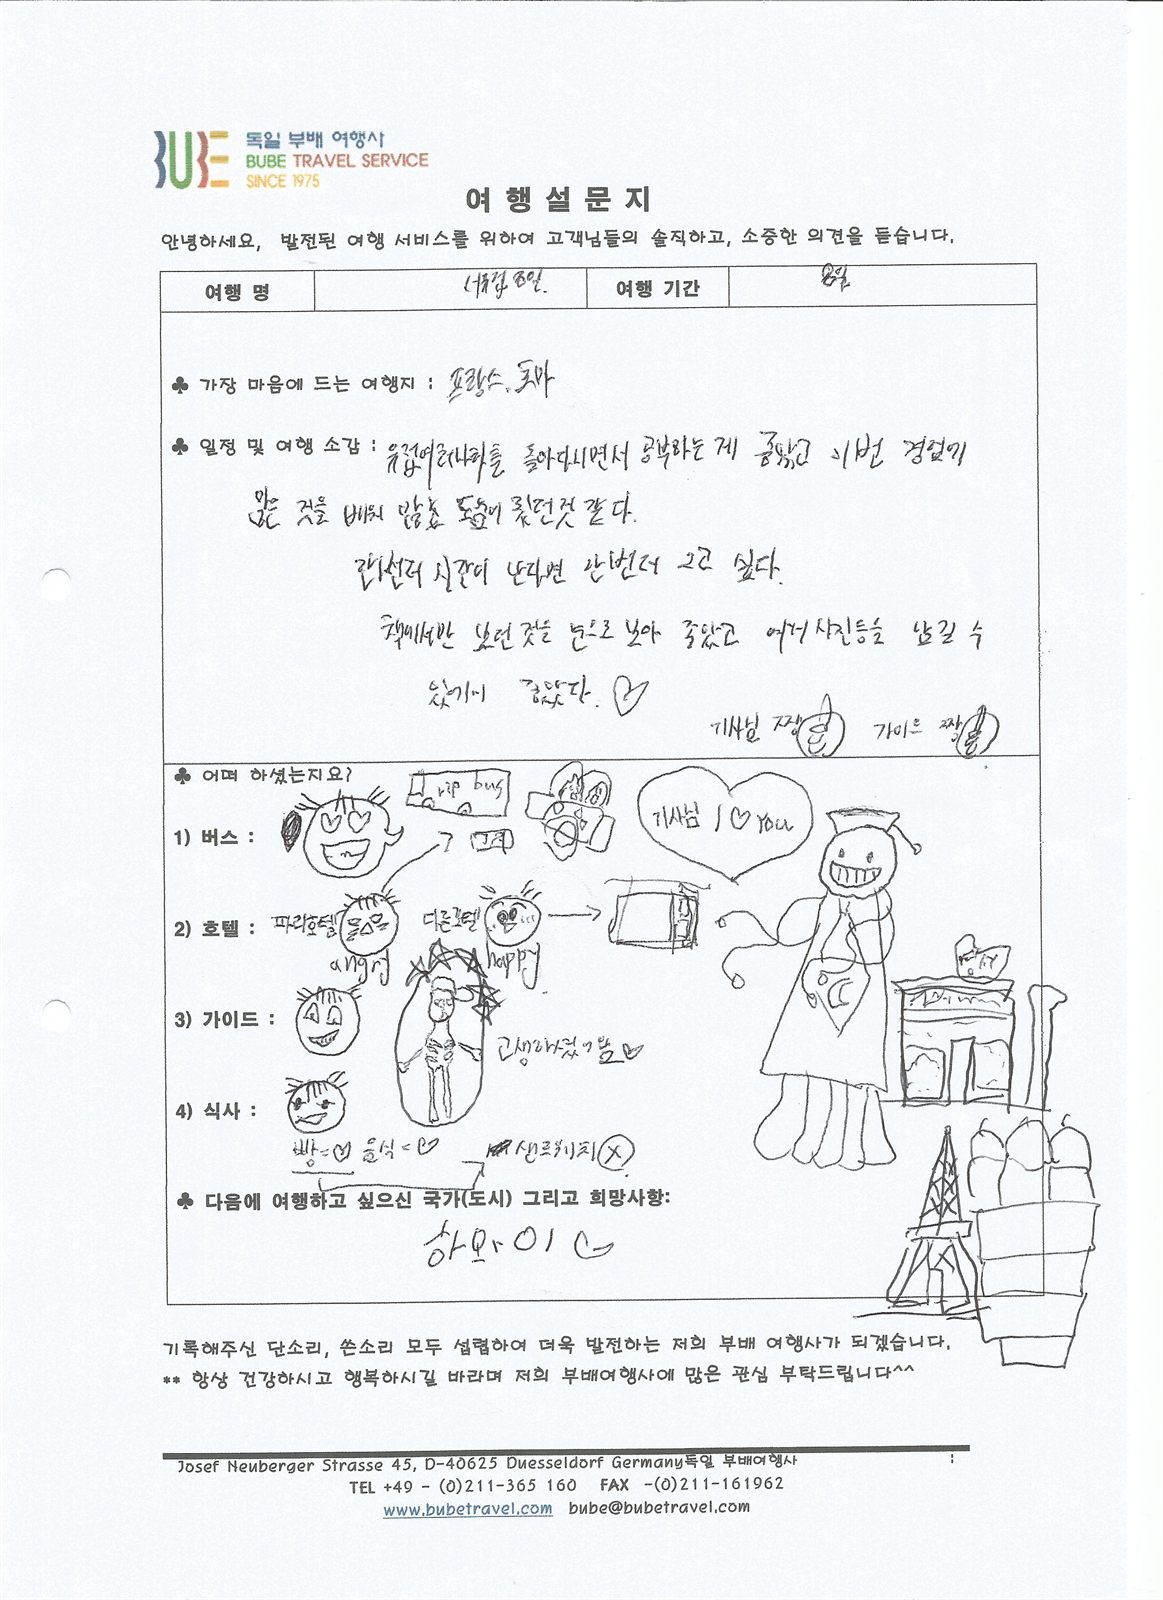 BUBE 독일 부배 여행사
BUBE TRAVEL SERVICE
SINCE 1975
여행설문지
안녕하세요, 발전된 여행 서비스를 위하여 고객님들의 솔직하고, 소중한 의견을 듣습니다.
여행 명 서유럽 8일. 여행 기간 8일
♣ 가장 마음에 드는 여행지 : 프랑스. 로마
♣ 일정 및 여행 소감 : 유럽여러나라를 돌아다니면서 공부하는 게 좋았고 이번 경험이
많은 것을 배워 많은 도움이 됬던것 같다.
시간이 난다면 한번더 오고 싶다.
책에서만 보던 것을 눈으로 보아 좋았고 여러 사진들을 남길 수
있어서 좋았다. ♡
기사님 짱 가이드 짱
♣ 어떠 하셨는지요?
trip bus
1) 버스 :
기사님 I ♡ You
2) 호텔 : 파리호텔 다른호텔
angry happy
3) 가이드 :
고생하셨나봄 ♡
4) 식사 :
빵=♡ 음식=♡ 샌드위치 X
♣ 다음에 여행하고 싶으신 국가(도시) 그리고 희망사항:
하와이 ♡
기록해주신 단소리, 쓴소리 모두 섭렵하여 더욱 발전하는 저희 부배 여행사가 되겠습니다.
** 항상 건강하시고 행복하시길 바라며 저희 부배여행사에 많은 관심 부탁드립니다^^
Josef Neuberger Strasse 45, D-40625 Duesseldorf Germany독일 부배여행사
TEL +49 - (0)211-365 160 FAX -(0)211-161962
www.bubetravel.com bube@bubetravel.com